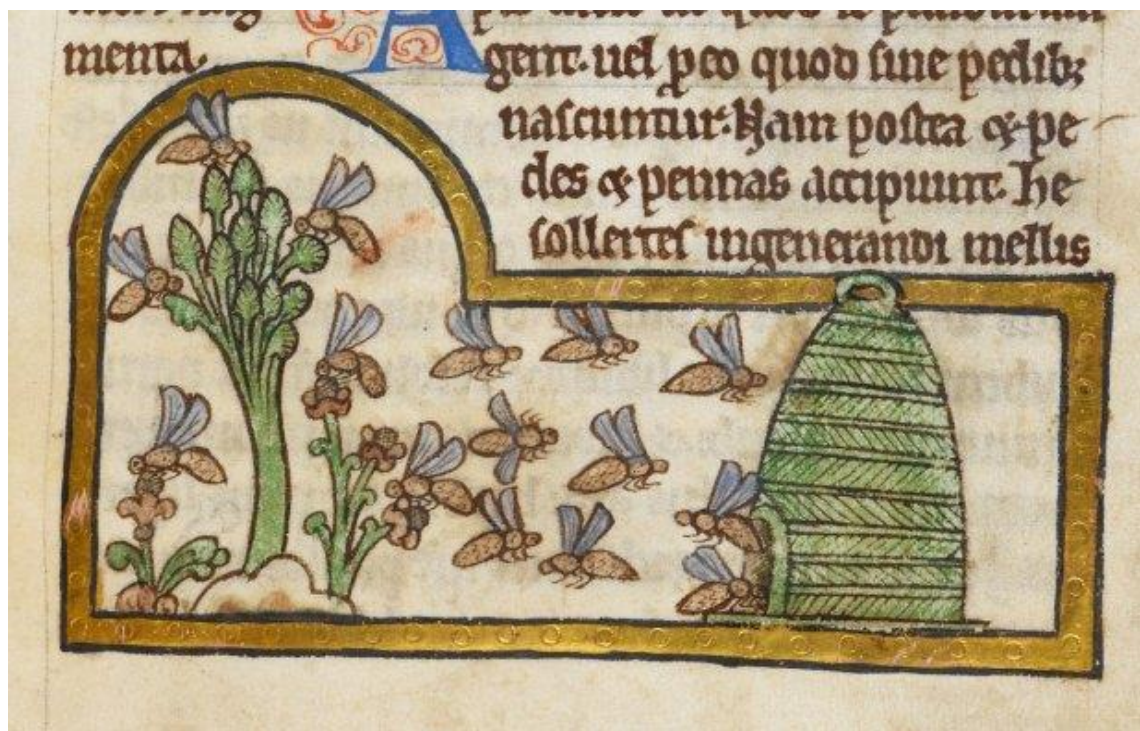 menta.
gent. uel ꝓ eo quod sine pedibꝫ
nascuntur. Nam postea & pe
des & pennas accipiunt. he
sollertes ingenerandi mellis